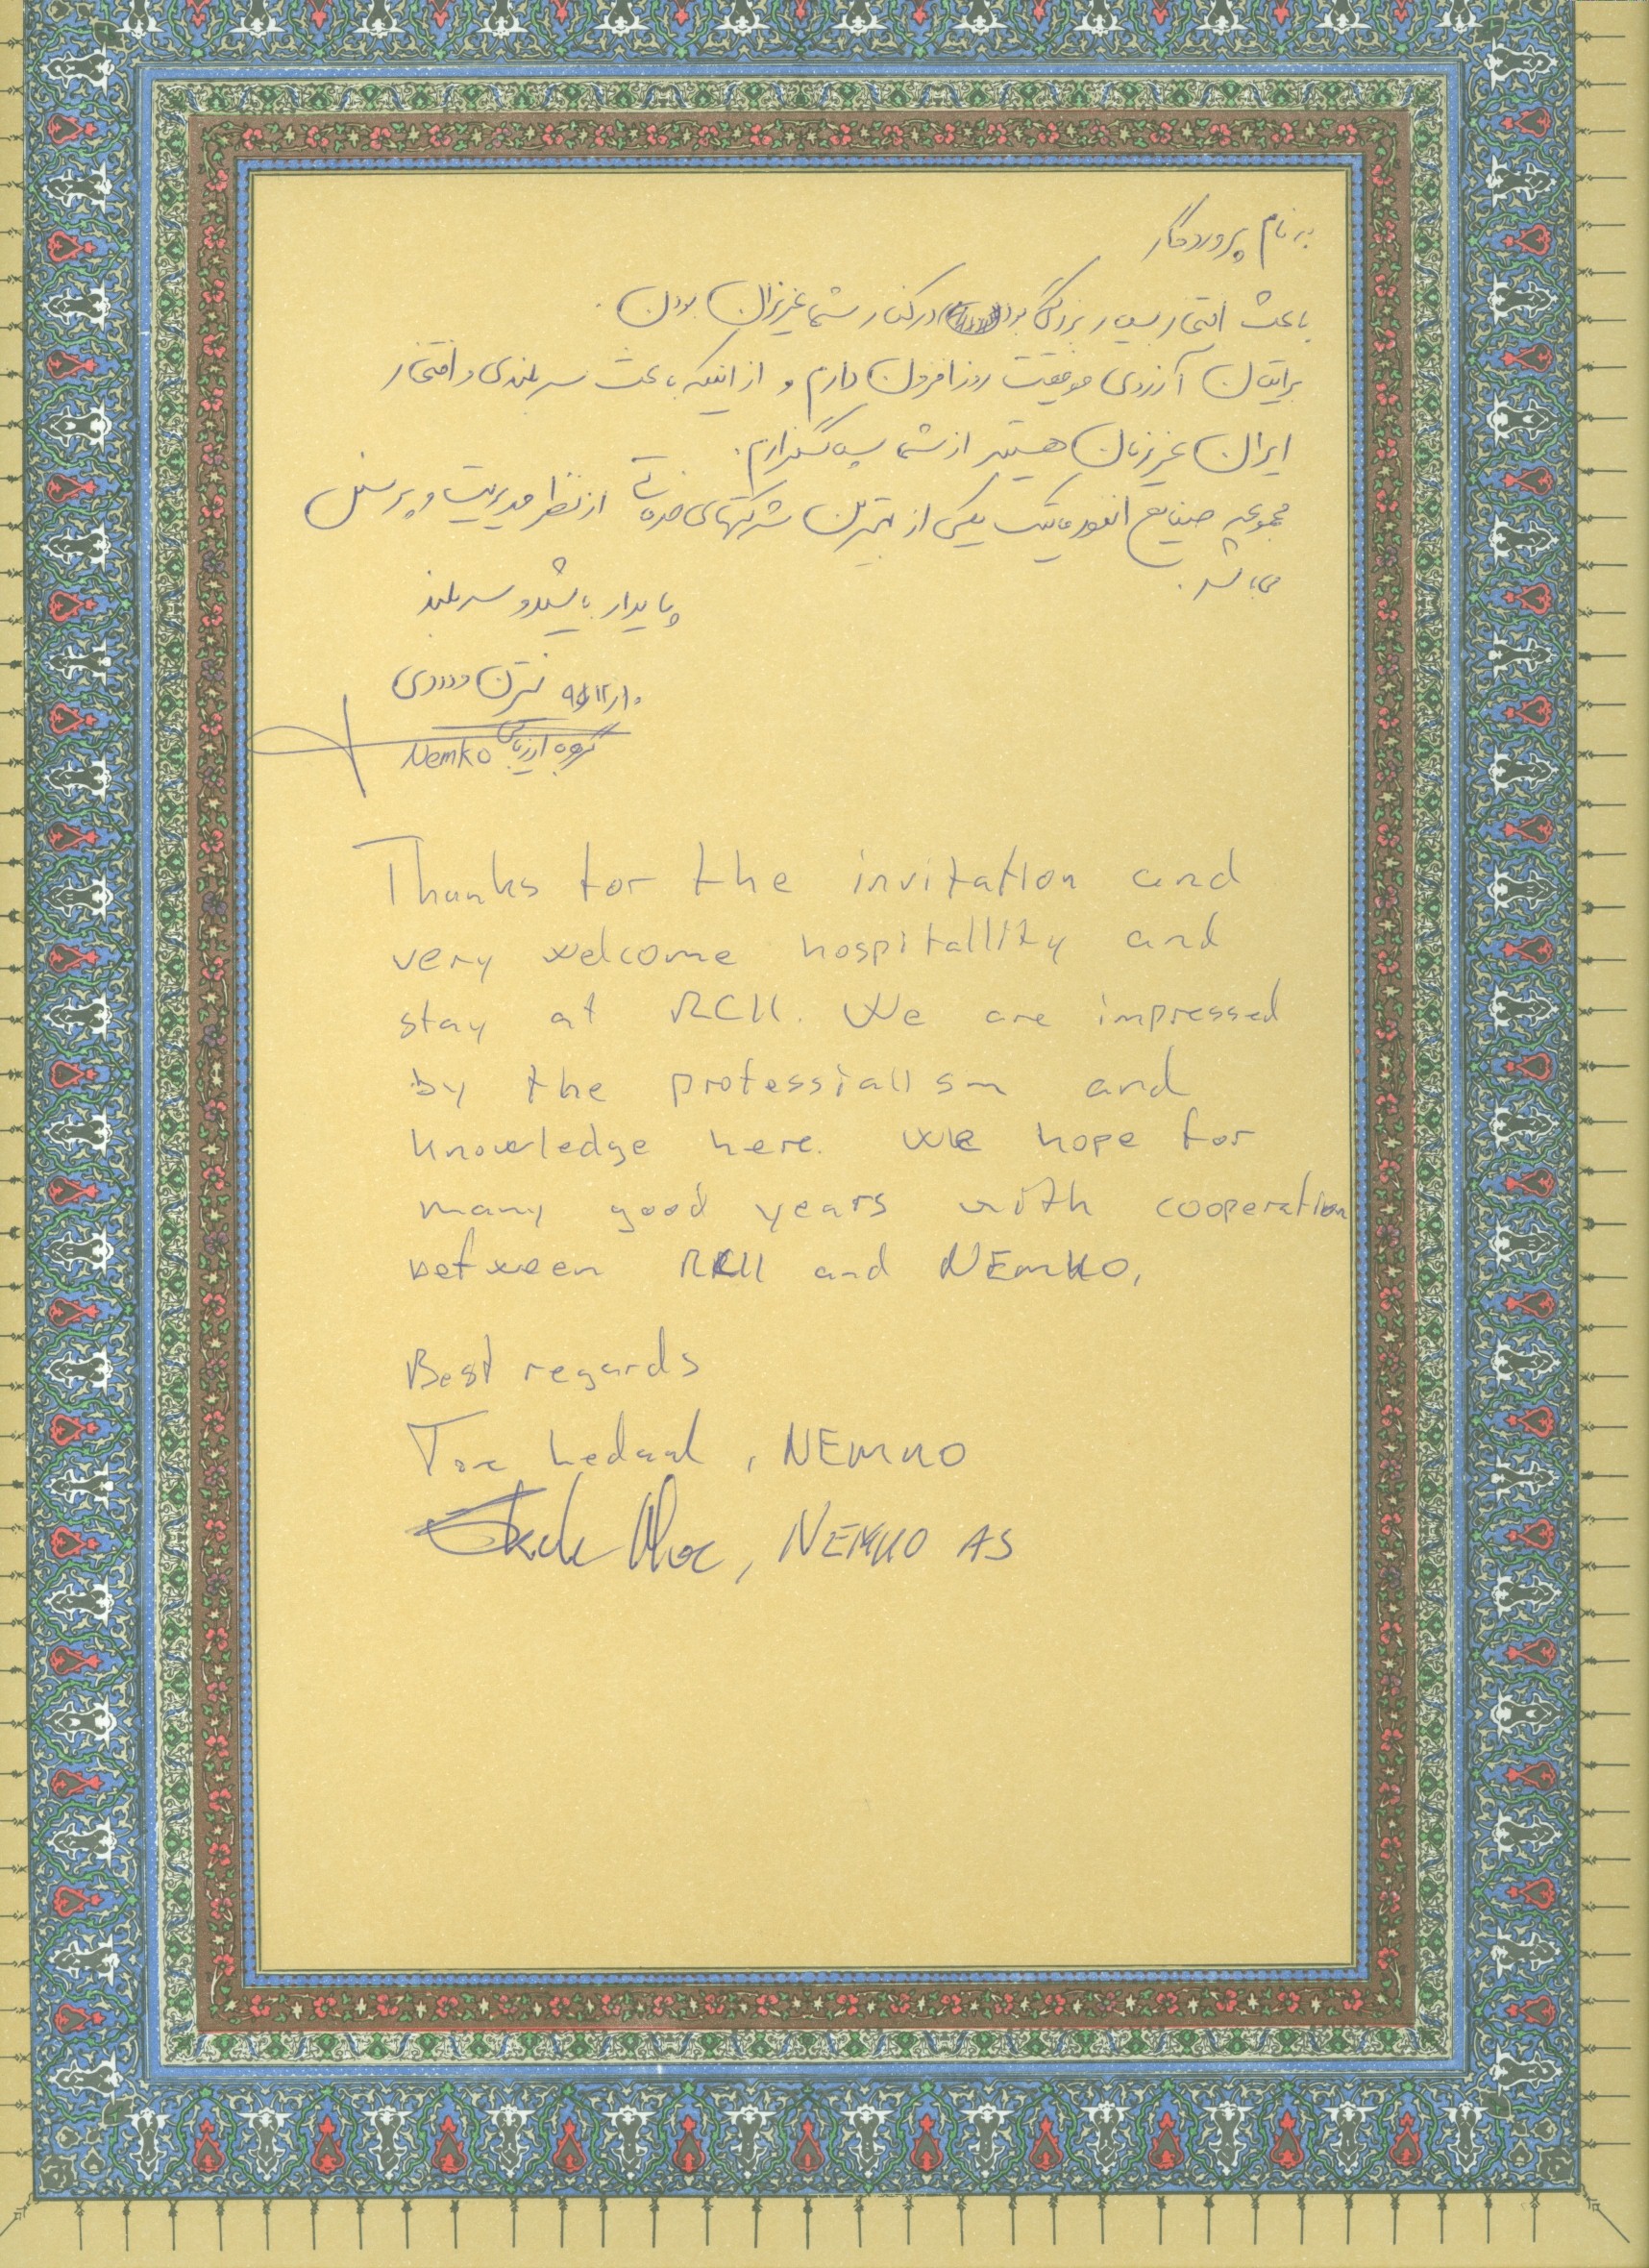 به نام پروردگار
باعث افتخار بسیار بزرگی بود در کنار شما عزیزان بودن.
برایتان آرزوی موفقیت روز افزون دارم و از اینکه باعث سربلندی و افتخار
ایران عزیزمان هستید از شما سپاسگزارم.
مجموعه صنایع انفورماتیک یکی از بهترین شرکتهای خدماتی از نظر مدیریت و پرسنل
می باشد.
پایدار باشید و سربلند
نسترن
گروه ارزیابی Nemko
Thanks for the invitation and
very welcome hospitallity and
stay at RCII. We are impressed
by the professiallism and
knowledge here. We hope for
many good years with cooperation
between RCII and NEMKO.
Best regards
Tore Ledaal, NEMKO
NEMKO AS